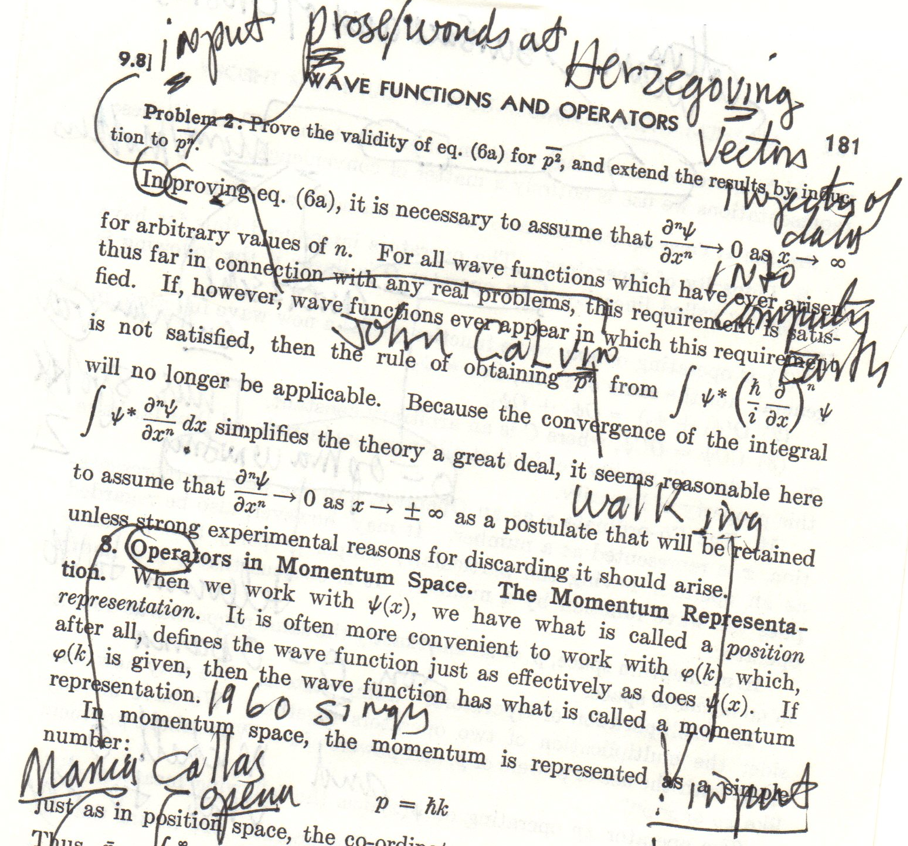 input prose/words at
Herzegoving
9.8]
WAVE FUNCTIONS AND OPERATORS
Vectors
181
Problem 2: Prove the validity of eq. (6a) for p̄², and extend the results by induc-
tion to p̄ⁿ.
of
data
In proving eq. (6a), it is necessary to assume that ∂ⁿψ/∂xⁿ → 0 as x → ∞
INto
for arbitrary values of n. For all wave functions which have ever arisen
thus far in connection with any real problems, this requirement is satis-
fied. If, however, wave functions ever appear in which this requirement
John Calvin
Earth
is not satisfied, then the rule of obtaining p̄ⁿ from ∫ ψ* (ħ/i ∂/∂x)ⁿ ψ
will no longer be applicable. Because the convergence of the integral
∫ ψ* ∂ⁿψ/∂xⁿ dx simplifies the theory a great deal, it seems reasonable here
walking
to assume that ∂ⁿψ/∂xⁿ → 0 as x → ± ∞ as a postulate that will be retained
unless strong experimental reasons for discarding it should arise.
8. Operators in Momentum Space. The Momentum Representa-
tion. When we work with ψ(x), we have what is called a position
representation. It is often more convenient to work with φ(k) which,
after all, defines the wave function just as effectively as does ψ(x). If
φ(k) is given, then the wave function has what is called a momentum
representation.
1960 sings
In momentum space, the momentum is represented as a simple
number:
input
Maria Callas
opera
p = ħk
just as in position space, the co-ordin
Thus